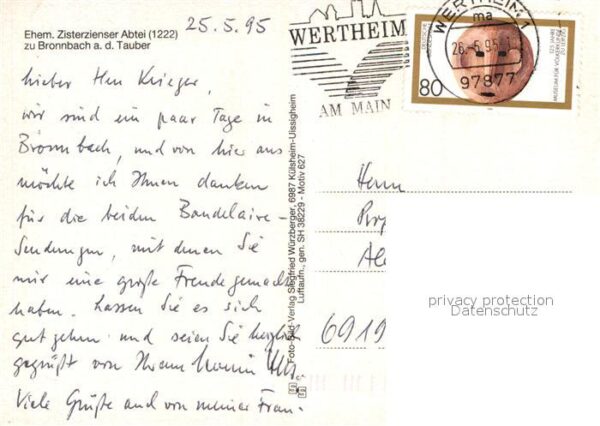 Ehem. Zisterzienser Abtei (1222)
zu Bronnbach a. d. Tauber
25.5.95
lieber Herr Krieger,
wir sind ein paar Tage in
Bronnbach, und von hier aus
möchte ich Ihnen danken
für die beiden Baudelaire-
Sendungen, mit denen Sie
mir eine große Freude gemacht
haben. Lassen Sie es sich
gut gehen und seien Sie herzlich
gegrüßt von Ihrem
Viele Grüße auch von meiner Frau.
Foto-Bild-Verlag Siegfried Würzberger, 6987 Külsheim-Uissigheim
Luftaufn., gen. SH 38229 - Motiv 627
WERTHEIM
AM MAIN
WERTHEIM 1
ma
26.-5.95
97877
80
DEUTSCHE BUNDESPOST
125 JAHRE
MUSEUM FÜR VÖLKERKUNDE
ZU LEIPZIG
Herrn
6919
privacy protection
Datenschutz